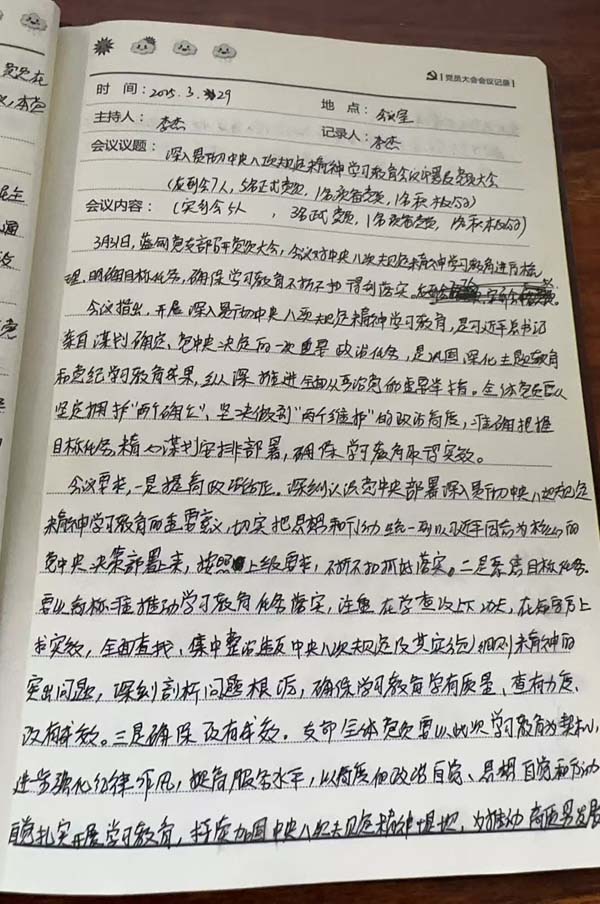 党员大会会议记录
时 间：2025.3.29
地 点：会议室
主持人：李杰
记录人：李杰
会议议题：深入贯彻中央八项规定精神学习教育会议部署及党员大会
(应到会7人，5名正式党员，1名预备党员，1名积极分子)
会议内容：(实到会5人，3名正式党员，1名预备党员，1名积极分子)
3月31日，蓝网党支部召开党员大会，会议对中央八项规定精神学习教育进行梳
理，明确目标任务，确保学习教育不折不扣得到落实。
会议指出，开展深入贯彻中央八项规定精神学习教育，是习近平总书记
亲自谋划确定、党中央决定的一次重要政治任务，是巩固深化主题教育
和党纪学习教育成果，纵深推进全面从严治党的重要举措。全体党员要从
坚定拥护"两个确立"、坚决做到"两个维护"的政治高度，准确把握
目标任务，精心谋划安排部署，确保学习教育取得实效。
会议要求，一是提高政治站位。深刻认识党中央部署深入贯彻中央八项规定
精神学习教育的重要意义，切实把思想和行动统一到以习近平同志为核心的
党中央决策部署上来，按照上级要求，不折不扣抓好落实。二是聚焦目标任务。
要以高标准推动学习教育任务落实，注重在学查改上下功夫，在
求实效，全面查找、集中整治违反中央八项规定及其实施细则精神的
突出问题，深刻剖析问题根源，确保学习教育学有质量、查有力度、
改有成效。三是确保改有成效。支部全体党员要以此次学习教育为契机，
进一步强化纪律作风，提高服务水平，以高度的政治自觉、思想自觉和行动
自觉扎实开展学习教育，持续加固中央八项规定精神堤坝，为推动高质量发展